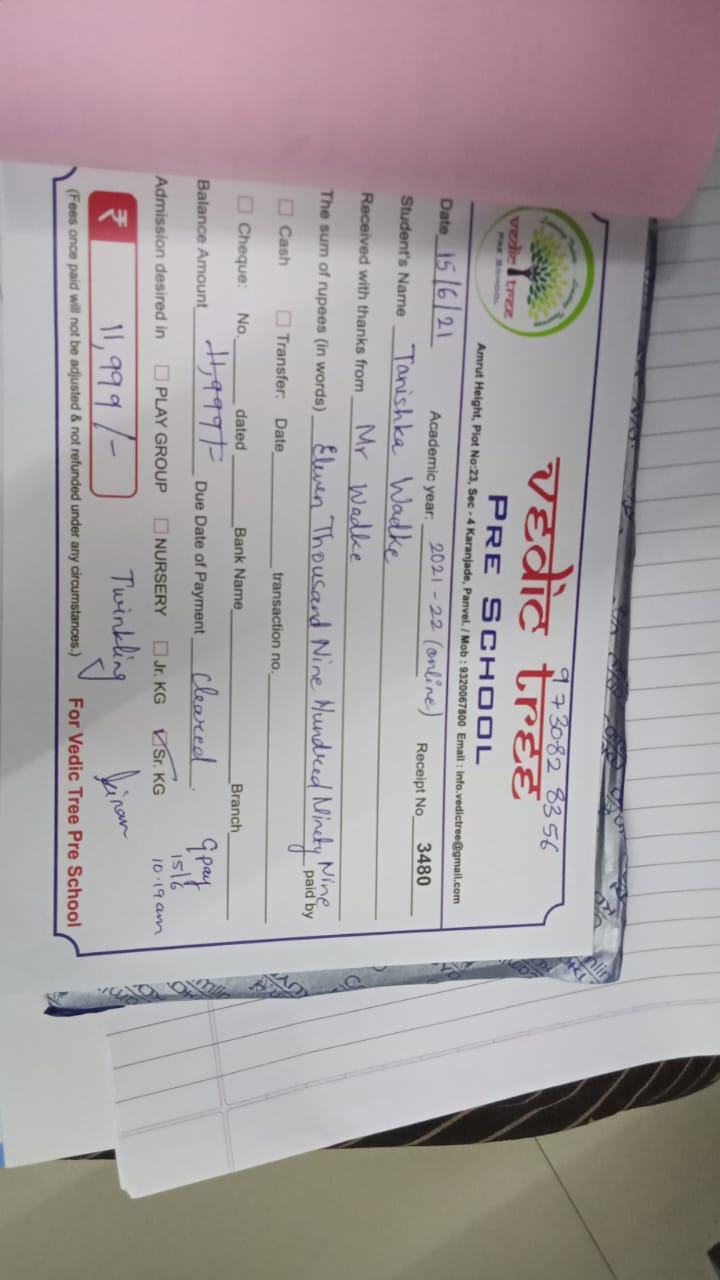 9 73082 8356
vedic tree
PRE SCHOOL
vedic tree
PRE SCHOOL
Amrut Height, Plot No:23, Sec - 4 Karanjade, Panvel. / Mob : 9320067800 Email : info.vedictree@gmail.com
Date 15/6/21 Academic year: 2021-22 (online) Receipt No 3480
Student's Name Tanishka Wadke
Received with thanks from Mr Wadke
The sum of rupees (in words) Eleven Thousand Nine Hundred Ninety Nine paid by
Cash Transfer: Date transaction no.
Cheque: No. dated Bank Name Branch
Balance Amount 11,999/- Due Date of Payment cleared. Gpay
15/6
10:19 am
Admission desired in PLAY GROUP NURSERY Jr. KG Sr. KG
₹ 11,999/- Twinkling
(Fees once paid will not be adjusted & not refunded under any circumstances.) For Vedic Tree Pre School